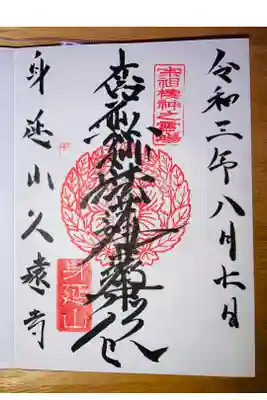 令和三年八月六日
宗祖棲神之霊場
南無妙法蓮華経
身延山
身延山久遠寺